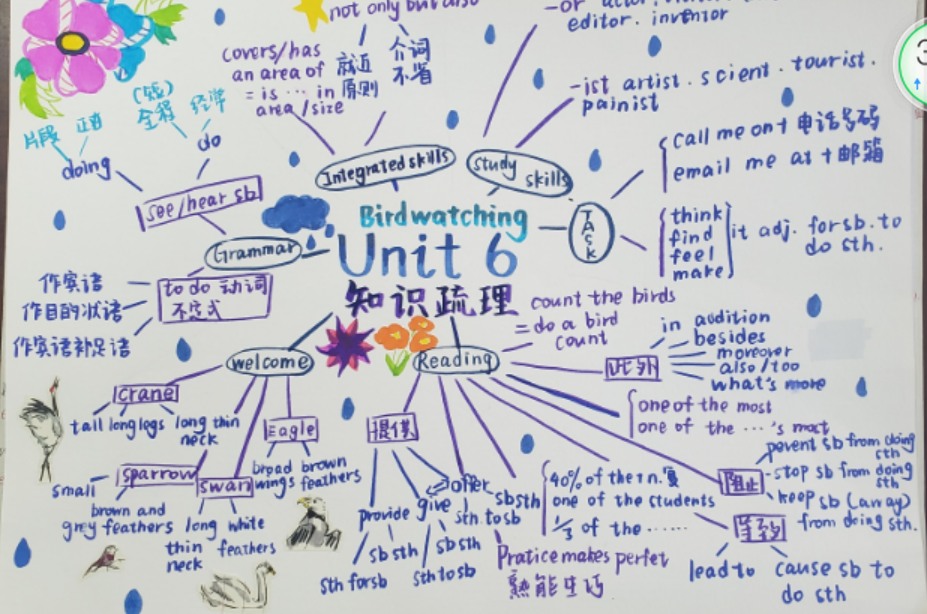 not only but also
covers/has
an area of
= is ... in
area/size
就近
原则
介词
不省
-or
editor. inventor
-ist artist. scient. tourist.
painist
(钱)
全程
经常
do
片段
正在
doing
see/hear sb
Integrated skills
study
skills
TASK
call me on + 电话号码
email me at + 邮箱
think
find
feel
make
it adj. for sb. to
do sth.
Birdwatching
Unit 6
知识疏理
Grammar
to do 动词
不定式
作宾语
作目的状语
作宾语补足语
welcome
Reading
count the birds
= do a bird
count
此外
in addition
besides
moreover
also/too
what's more
one of the most
one of the ...'s most
crane
tall
long legs
long thin
neck
Eagle
broad
wings
brown
feathers
sparrow
small
brown and
grey feathers
swan
long
thin
neck
white
feathers
提供
provide
sb sth
sth for sb
give
sb sth
sth to sb
offer
sb sth
sth to sb
40% of the + n.复
one of the students
1/3 of the ......
Pratice makes perfet
熟能生巧
阻止
pevent sb from doing
sth
-stop sb from doing
sth
keep sb (away)
from doing sth.
导致
lead to
cause sb to
do sth
3